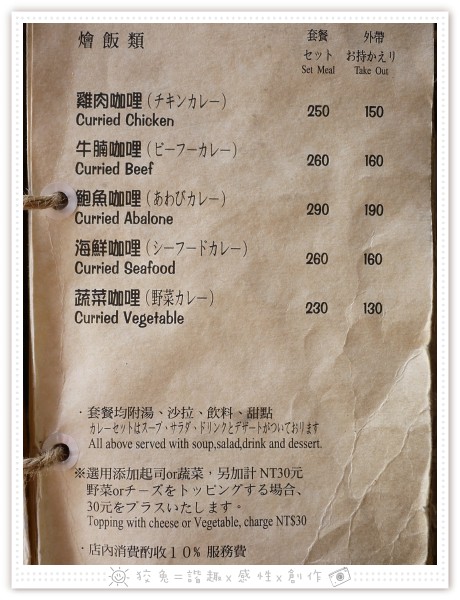 燴飯類
套餐 外帶
セット お持かえり
Set Meal Take Out
雞肉咖哩(チキンカレー)
Curried Chicken 250 150
牛腩咖哩(ビーフーカレー)
Curried Beef 260 160
鮑魚咖哩(あわびカレー)
Curried Abalone 290 190
海鮮咖哩(シーフードカレー)
Curried Seafood 260 160
蔬菜咖哩(野菜カレー)
Curried Vegetable 230 130
·套餐均附湯、沙拉、飲料、甜點
カレーセットはスープ・サラダ・ドリンクとデザートがついております
All above served with soup,salad,drink and dessert.
※選用添加起司or蔬菜,另加計 NT30元
野菜orチーズをトッピングする場合、
30元をプラスいたします。
Topping with cheese or Vegetable, charge NT$30
·店內消費酌收10%服務費
狡兔=諧趣x感性x創作